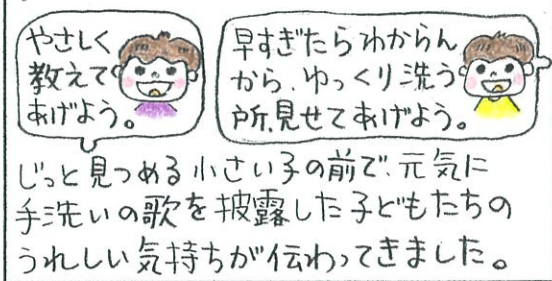 やさしく
教えて
あげよう。
早すぎたらわからん
から、ゆっくり洗う
所、見せてあげよう。
じっと見つめる小さい子の前で、元気に
手洗いの歌を披露した子どもたちの
うれしい気持ちが伝わってきました。